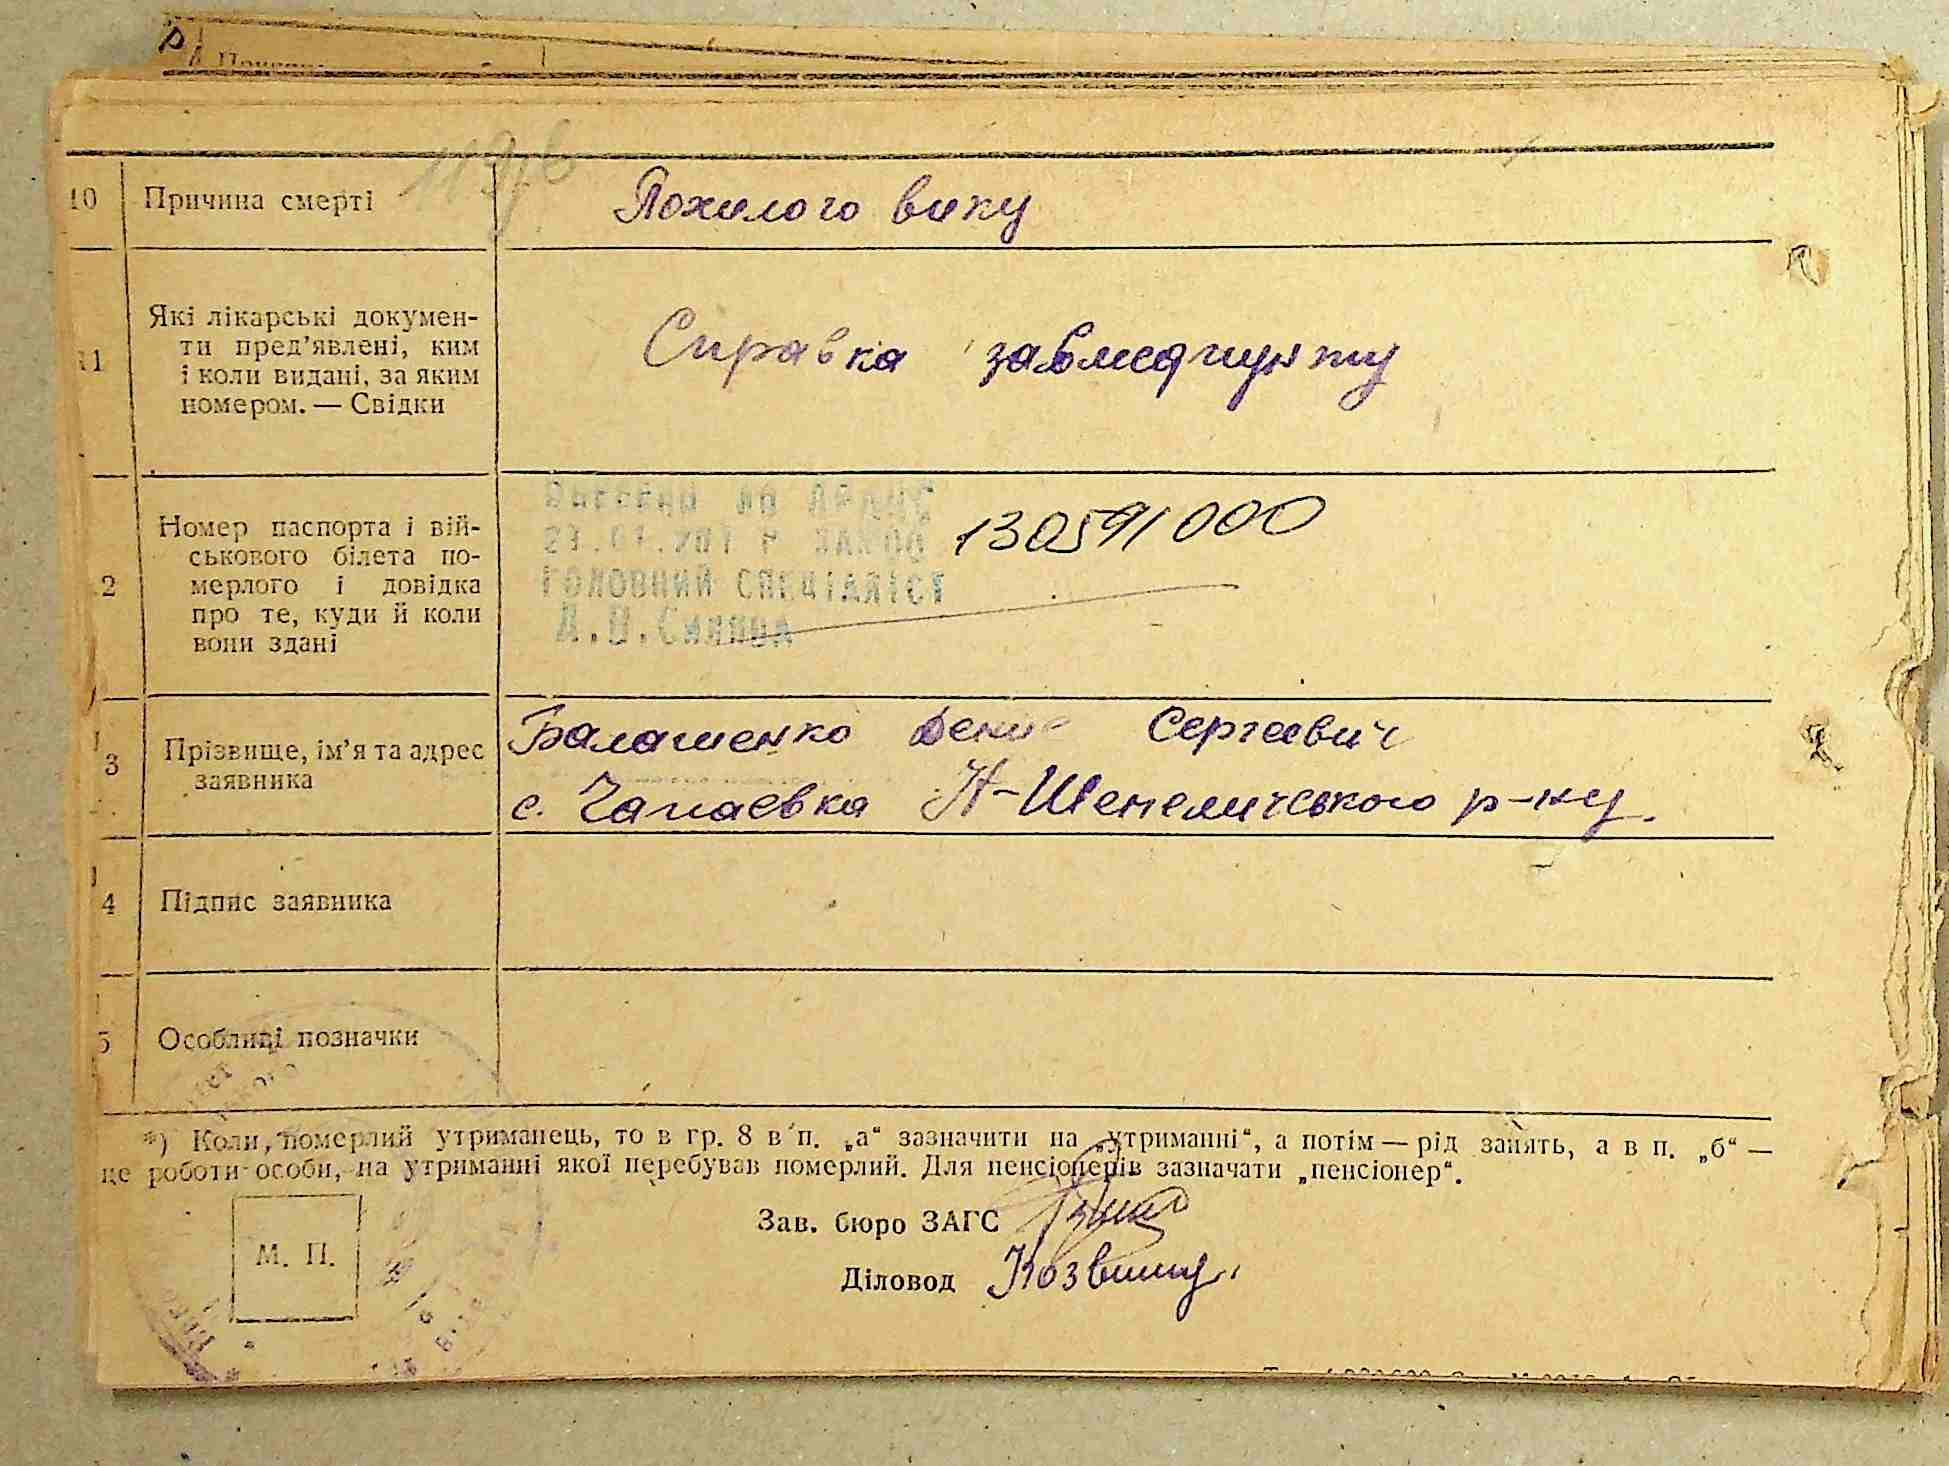 10 Причина смерті Похилого вику
11 Які лікарські докумен-
ти пред’явлені, ким
і коли видані, за яким
номером. — Свідки
Справка завмедпункту
2 Номер паспорта і вій-
ськового білета по-
мерлого і довідка
про те, куди й коли
вони здані
ГОЛОВНИЙ СПЕЦІАЛІСТ
130591000
3 Прізвище, ім’я та адрес
заявника
Балашенко Денис Сергеевич
с. Чапаевка Н-Шепеличського р-ну.
4 Підпис заявника
5 Особливі позначки
*) Коли, померлий утриманець, то в гр. 8 в п. „а“ зазначити на „утриманні“, а потім — рід занять, а в п. „б“ —
це роботи особи, на утриманні якої перебував померлий. Для пенсіонерів зазначати „пенсіонер“.
М. П.
Зав. бюро ЗАГС
Діловод